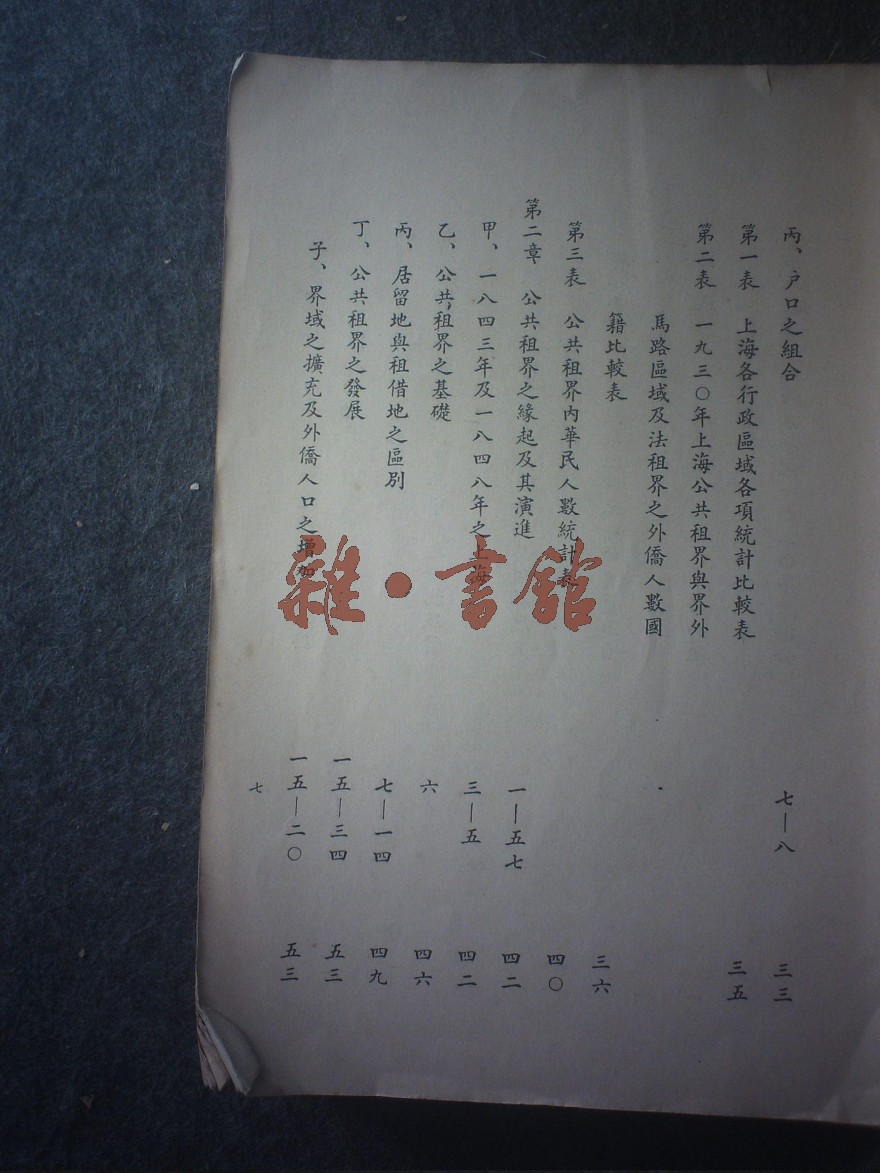 丙、戶口之組合　七—八　三三
第一表　上海各行政區域各項統計比較表　三五
第二表　一九三〇年上海公共租界與界外
馬路區域及法租界之外僑人數國
籍比較表　三六
第三表　公共租界內華民人數統計表　四〇
第二章　公共租界之緣起及其演進　一—五七　四二
甲、一八四三年及一八四八年之上海　三—五　四二
乙、公共租界之基礎　六　四六
丙、居留地與租借地之區別　七—一四　四九
丁、公共租界之發展　一五—三四　五三
子、界域之擴充及外僑人口之增加　一五—二〇　五三
七
雜·書館